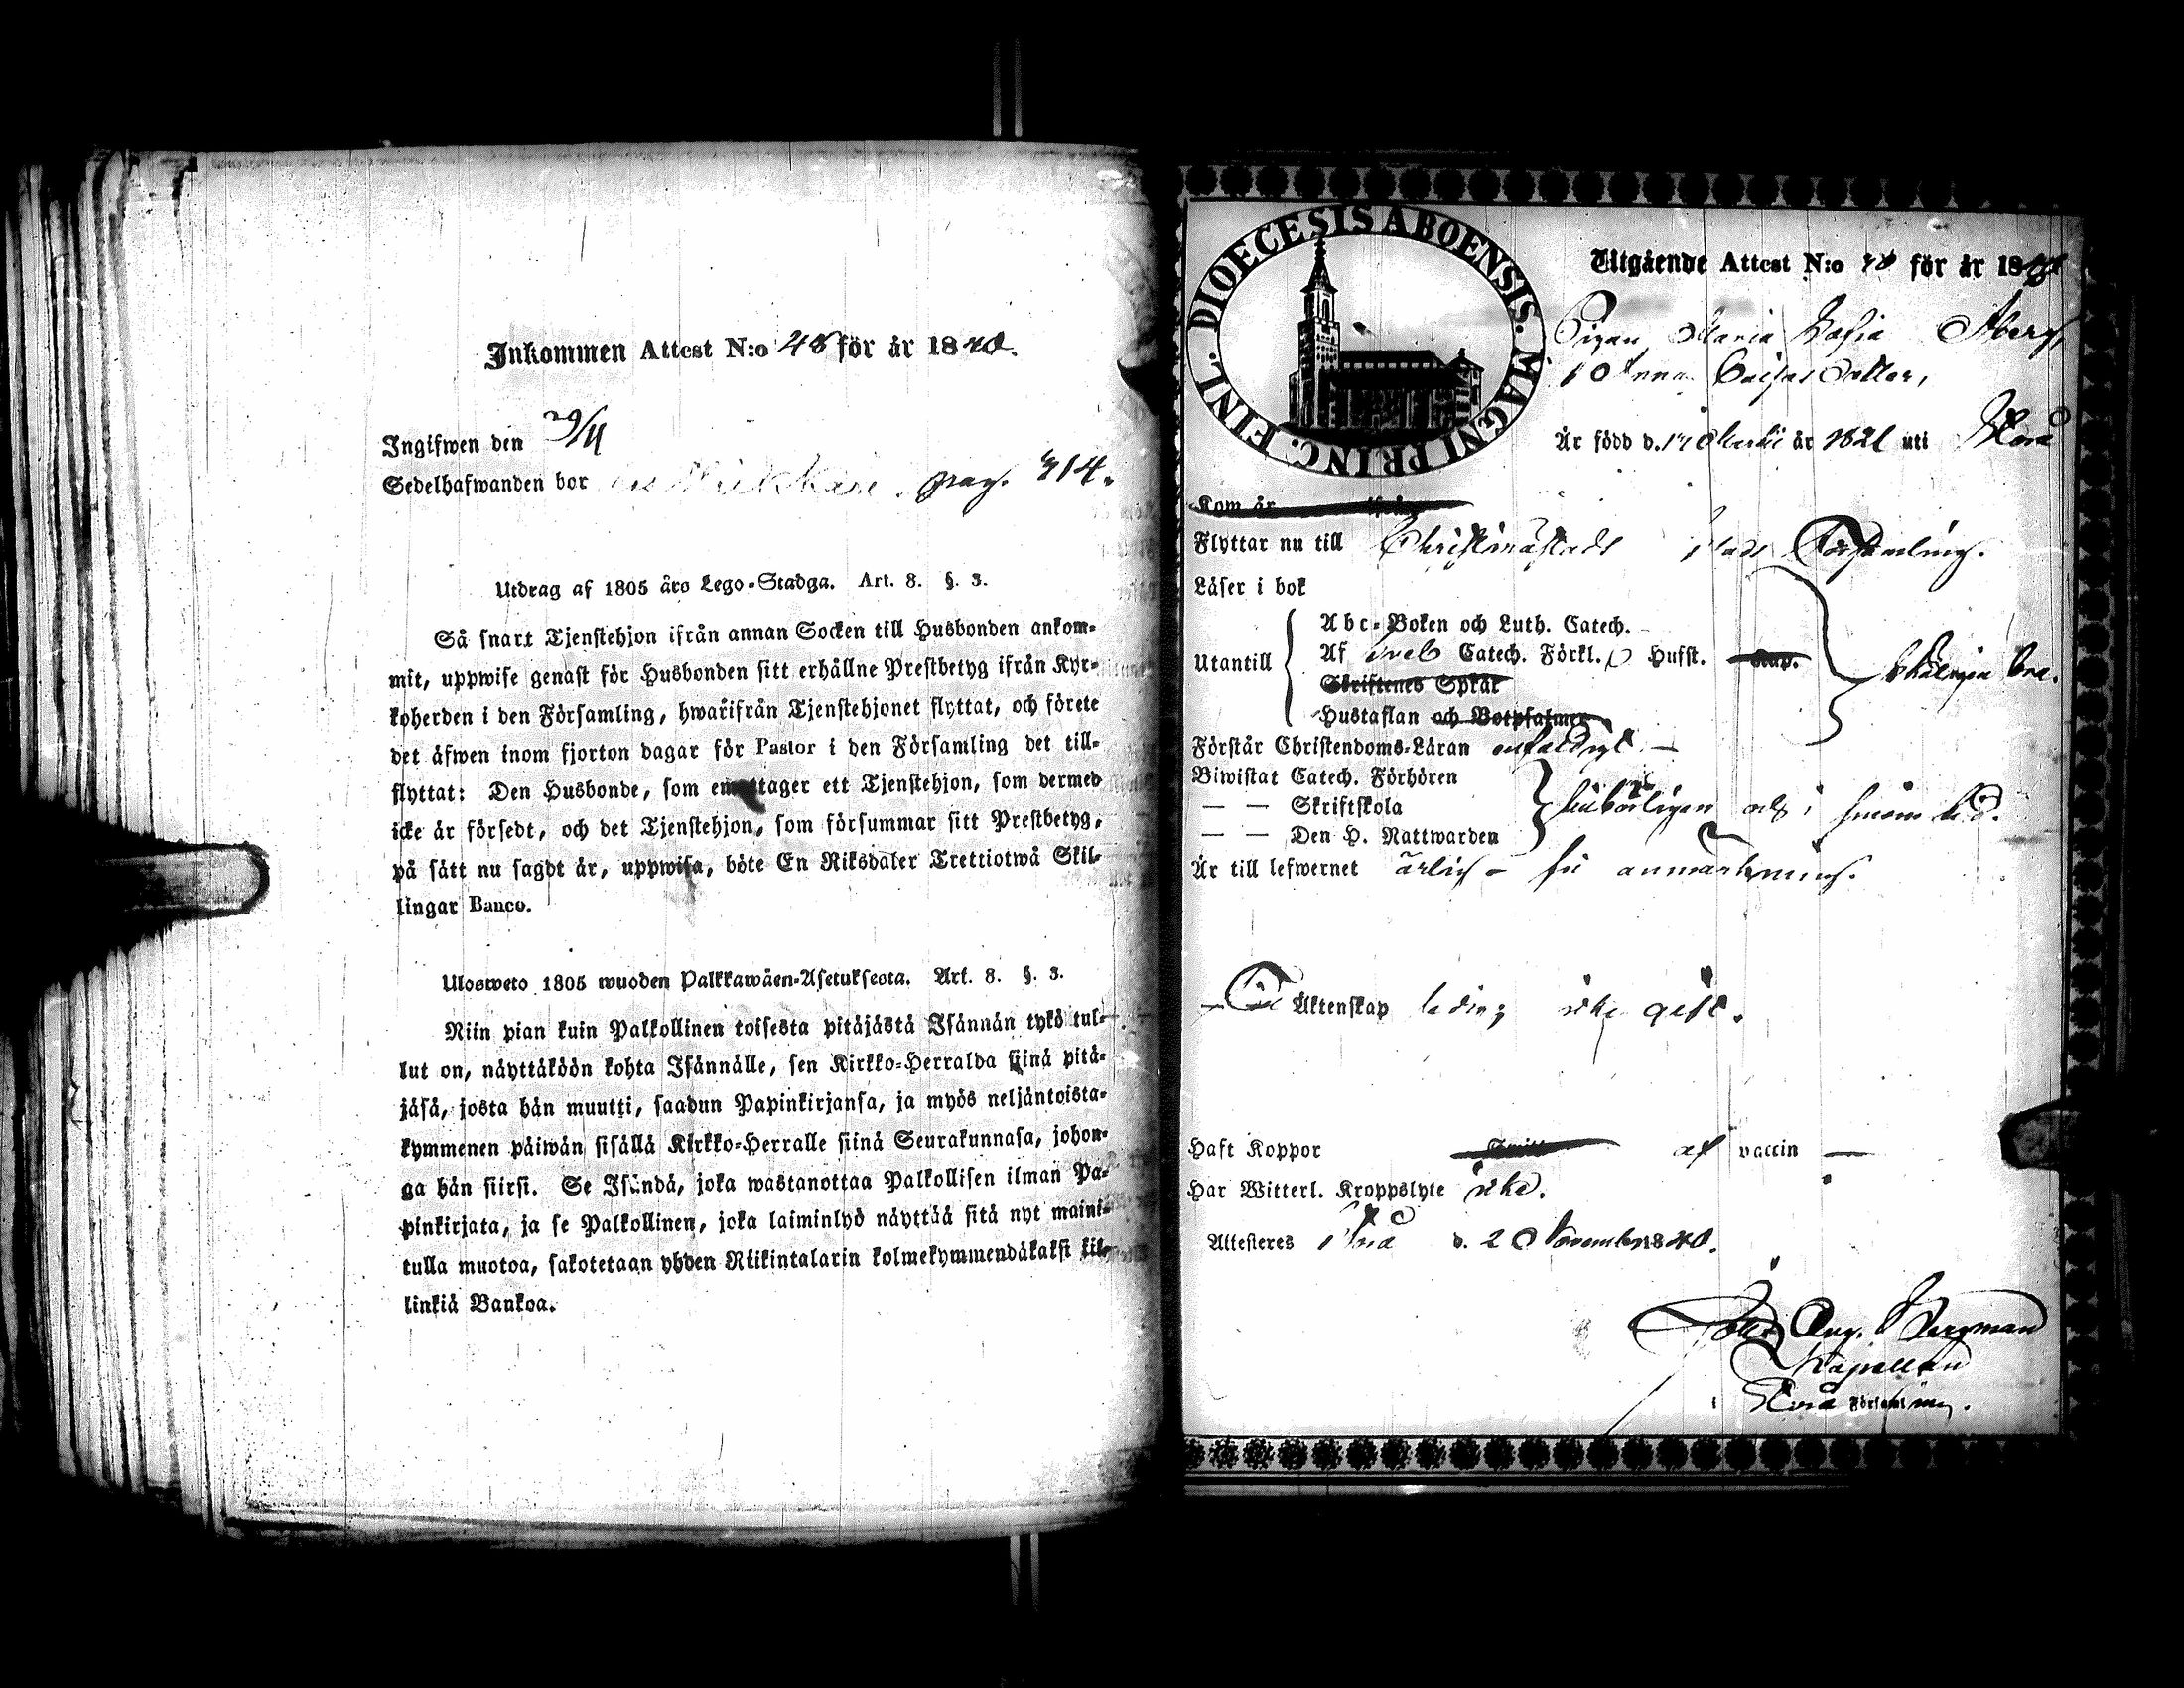 Inkommen Attest N:o 48 för år 1840.
Ingifwen den 29/11
Sedelhafwanden bor pag. 314.
Utdrag af 1805 års Lego-Stadga. Art. 8. §. 3.
Så snart Tjenstehjon ifrån annan Socken till Husbonden ankom-
mit, uppwise genast för Husbonden sitt erhållne Prestbetyg ifrån Kyr-
koherden i den Församling, hwarifrån Tjenstehjonet flyttat, och förete
det äfwen inom fjorton dagar för Pastor i den Församling det till-
flyttat: Den Husbonde, som emottager ett Tjenstehjon, som dermed
icke är försedt, och det Tjenstehjon, som försummar sitt Prestbetyg,
på sätt nu sagdt är, uppwisa, böte En Riksdaler Trettiotwå Skil-
lingar Banco.
Ulosweto 1805 wuoden Palkkawäen-Asetuksesta. Art. 8. §. 3.
Niin pian kuin Palkollinen toisesta pitäjästä Isännän tykö tul-
lut on, näyttäköön kohta Isännälle, sen Kirkko-Herralda siinä pitä-
jäsä, josta hän muutti, saadun Papinkirjansa, ja myös neljäntoista-
kymmenen päiwän sisällä Kirkko-Herralle siinä Seurakunnasa, johon-
ga hän siirsi. Se Isändä, joka wastanottaa Palkollisen ilman Pa-
pinkirjata, ja se Palkollinen, joka laiminlyö näyttää sitä nyt maini-
tulla muotoa, sakotetaan yhden Riikintalarin kolmekymmendäkaksi kil-
linkiä Bankoa.
DIOECESIS ABOENSIS. MAGNI PRINC. FINL.
Utgående Attest N:o för år 18
Pigan Maria Sofia Åberg,
Anna Caisas Dotter,
Är född d. 17 Martii år 1821 uti
Kom år ifrån
Flyttar nu till Christinæstads Stads Församling.
Läser i bok
Utantill
Abc-Boken och Luth. Catech.
Af Sveb Catech. Förkl. o Husst. Kap.
Skriftenes Språk
Hustaflan och Botpsalmer
Förstår Christendoms-Läran enfaldigt —
Biwistat Catech. Förhören
— — Skriftskola
— — Den H. Nattwarden
Är till lefwernet ärlig - fri anmärkning.
Till Äktenskap ledig, icke gift.
Haft Koppor Smitt af vaccin —
Har Witterl. Kroppslyte icke.
Attesteres d. 20 November 1840.
Aug. Bergman
Kapellan
i Församling.